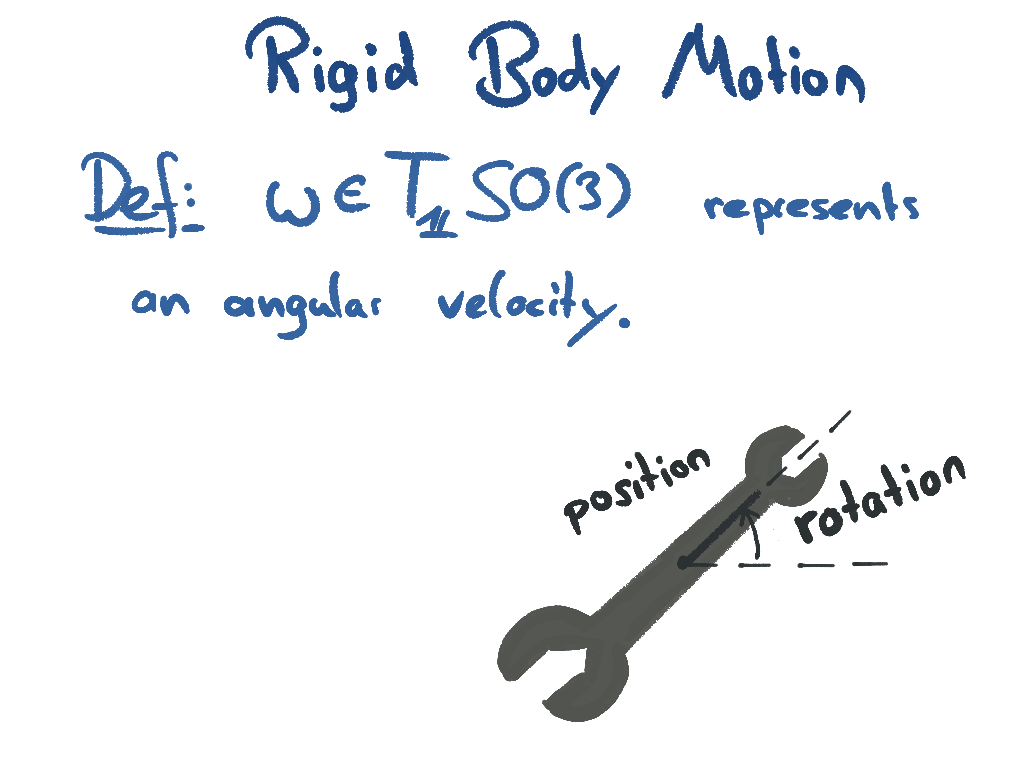 Rigid Body Motion
Def: ω ∈ T_𝟙 SO(3) represents
an angular velocity.
position
rotation